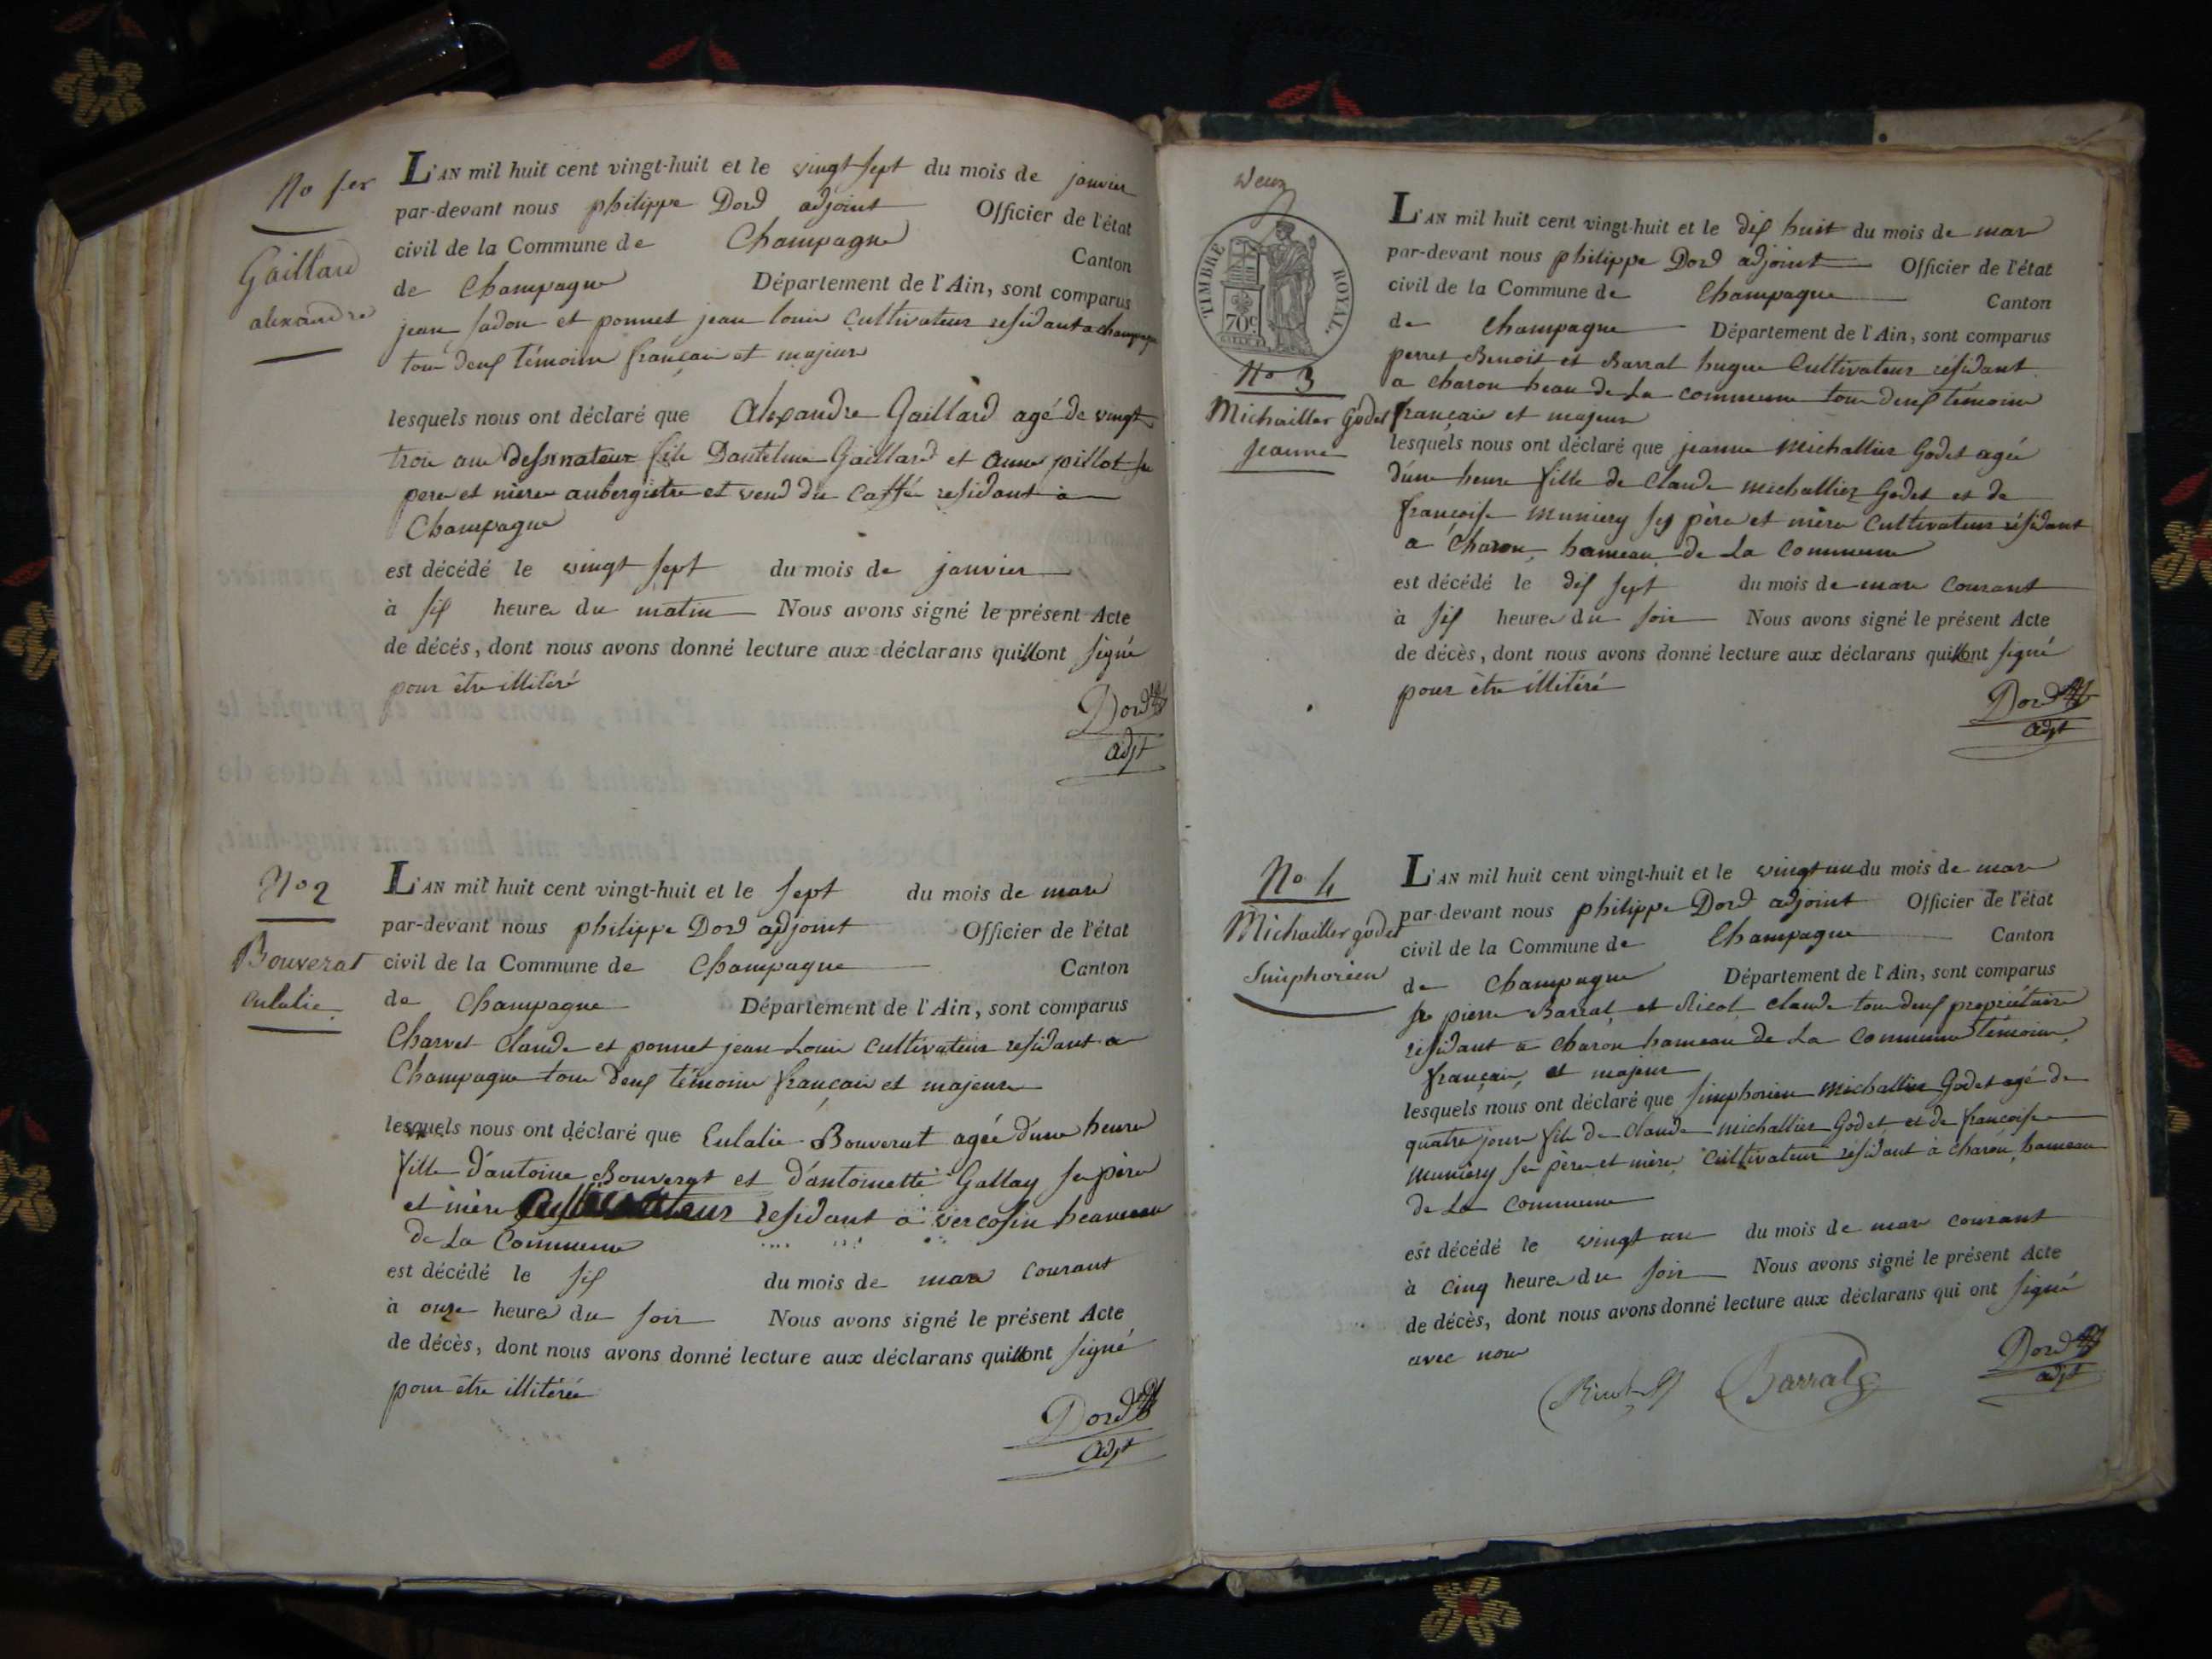 No 1er
Gaillard
alexandre
L'AN mil huit cent vingt-huit et le vingt sept du mois de janvier
par-devant nous philippe Dord adjoint Officier de l'état
civil de la Commune de Champagne Canton
de Champagne Département de l'Ain, sont comparus
jean et ponnet jean louis Cultivateur residant a champagne
tous deux témoins français et majeurs
lesquels nous ont déclaré que Alexandre Gaillard agé de vingt
trois ans dessinateur fils Gaillard et anne pillot
pere et mère aubergistre et vend du Caffé residant à
Champagne
est décédé le vingt sept du mois de janvier
à six heures du matin Nous avons signé le présent Acte
de décés, dont nous avons donné lecture aux déclarans qui ont signé
pour être illitéré
Dord
adjt
No 2
Bouverat
eulalie
L'AN mil huit cent vingt-huit et le sept du mois de mars
par-devant nous philippe Dord adjoint Officier de l'état
civil de la Commune de Champagne Canton
de Champagne Département de l'Ain, sont comparus
Charvet Claude et ponnet jean Louis Cultivateurs residant a
Champagne tous deux témoins français et majeurs
lesquels nous ont déclaré que Eulalie Bouverat agée d'une heure
fille d'antoine Bouverat et d'antoinette Gallay ses père
et mère Cultivateur residant à vercosin
de La Commune
est décédé le six du mois de mars courant
à onze heures du soir Nous avons signé le présent Acte
de décès, dont nous avons donné lecture aux déclarans qui ont signé
pour être illitérés
Dord
Adjt
deux
TIMBRE ROYAL
70c
No 3
Michaillier Godet
Jeanne
L'AN mil huit cent vingt-huit et le dix huit du mois de mars
par-devant nous philippe Dord adjoint Officier de l'état
civil de la Commune de Champagne Canton
de Champagne Département de l'Ain, sont comparus
perret Benoit et Barral hugue Cultivateur résidant
a charon heau de La commune tous deux témoins
français et majeurs
lesquels nous ont déclaré que jeanne Michallier Godet agée
d'une heure fille de Claude michallier Godet et de
françoise muniery ses père et mère Cultivateurs résidant
a Charon hameau de La Commune
est décédé le dix sept du mois de mars courant
à six heures du soir Nous avons signé le présent Acte
de décès, dont nous avons donné lecture aux déclarans qui ont signé
pour être illitéré
Dord
adjt
No 4
Michaillier godet
Simphorien
L'AN mil huit cent vingt-huit et le vingt un du mois de mars
par-devant nous philippe Dord adjoint Officier de l'état
civil de la Commune de Champagne Canton
de Champagne Département de l'Ain, sont comparus
pierre Barral et claude tous deux propriétaires
résidant a Charon hameau de La Commune témoins
français et majeurs
lesquels nous ont déclaré que simphorien michallier Godet agé de
quatre jours fils de Claude michallier Godet et de françoise
muniery ses père et mère Cultivateurs résidant à charon hameau
de La Commune
est décédé le vingt un du mois de mars courant
à cinq heures du soir Nous avons signé le présent Acte
de décès, dont nous avons donné lecture aux déclarans qui ont signé
avec nous
Barral
Dord
adjt